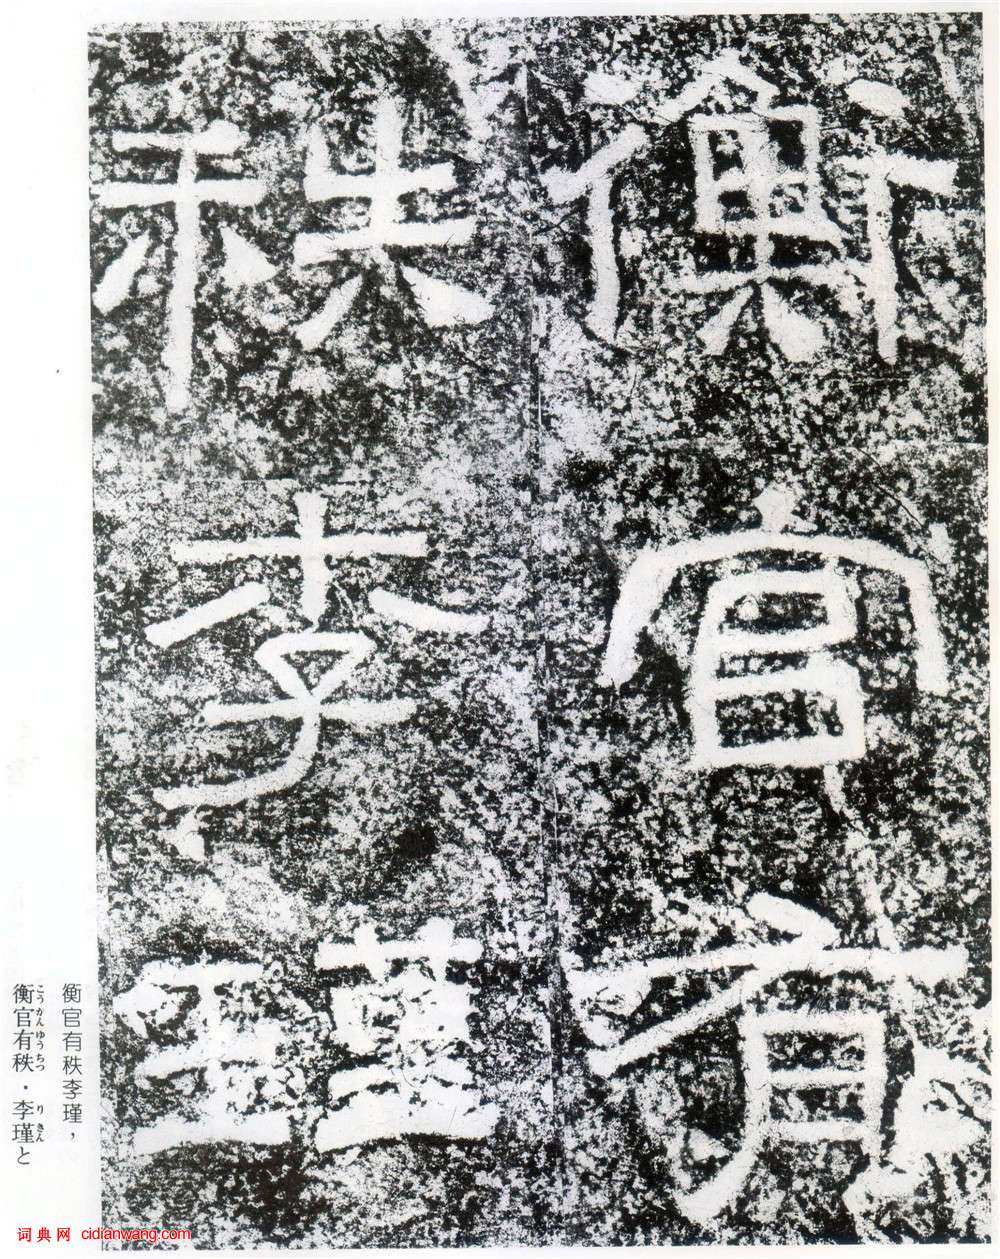 衡官有
秩李瑾
衡官有秩李瑾，
衡官有秩・李瑾と
こうかんゆうちつ りきん
词典网 cidianwang.com